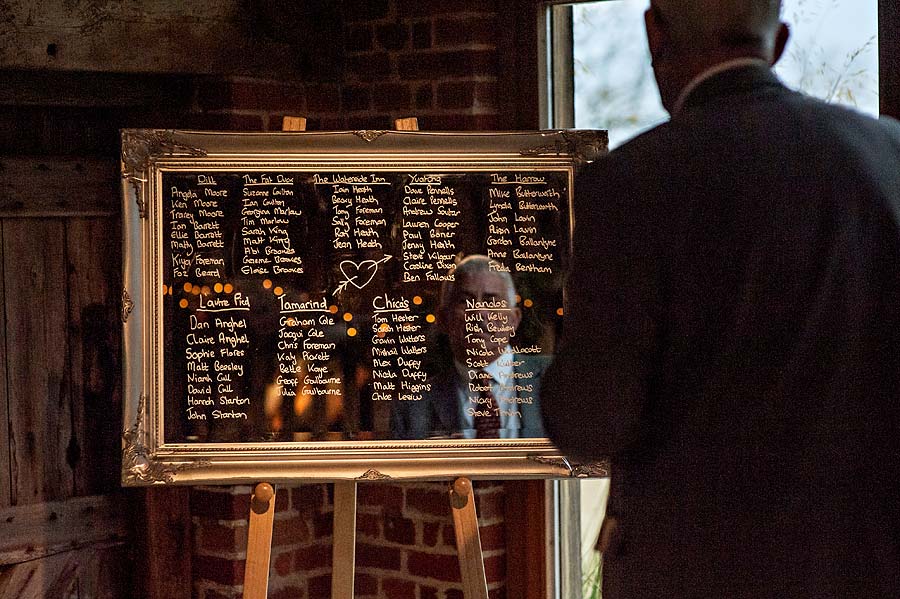 Dill
Angela Moore
Ken Moore
Tracey Moore
Ian Barrett
Ellie Barrett
Matty Barrett
Kiya Foreman
Foz Beard
The Fat Duck
Suzanne Cuilton
Ian Cuilton
Georgina Marlow
Tim Marlow
Sarah King
Matt King
Abi Brookes
Graeme Brookes
Eloise Brookes
The Waterside Inn
Iain Heath
Becky Heath
Tony Foreman
Sally Foreman
Ron Heath
Jean Heath
Yuahong
Dave Pennells
Claire Pennells
Andrew Soutar
Lauren Cooper
Paul Boner
Jenny Heath
Steve Kilgour
Caroline Dixon
Ben Fallows
The Harrow
Mike Butterworth
Lynda Butterworth
John Lavin
Alison Lavin
Gordon Ballantyne
Anne Ballantyne
Freda Bentham
Lautre Pied
Dan Anghel
Claire Anghel
Sophie Flores
Matt Beesley
Niamh Gill
David Gill
Hannah Stanton
John Stanton
Tamarind
Graham Cole
Jacqui Cole
Chris Foreman
Katy Prockett
Bette Kaye
Geoff Goulbourne
Julia Goulbourne
Chico's
Tom Hester
Sarah Hester
Gavin Watters
Michal Watters
Alex Duffy
Nicola Duffy
Matt Higgins
Chloe Lesiuu
Nandos
Will Kelly
Rich Bewley
Tony Cope
Nicola Woollacott
Scott
Diane Andrews
Robert Andrews
Nicky Andrews
Steve